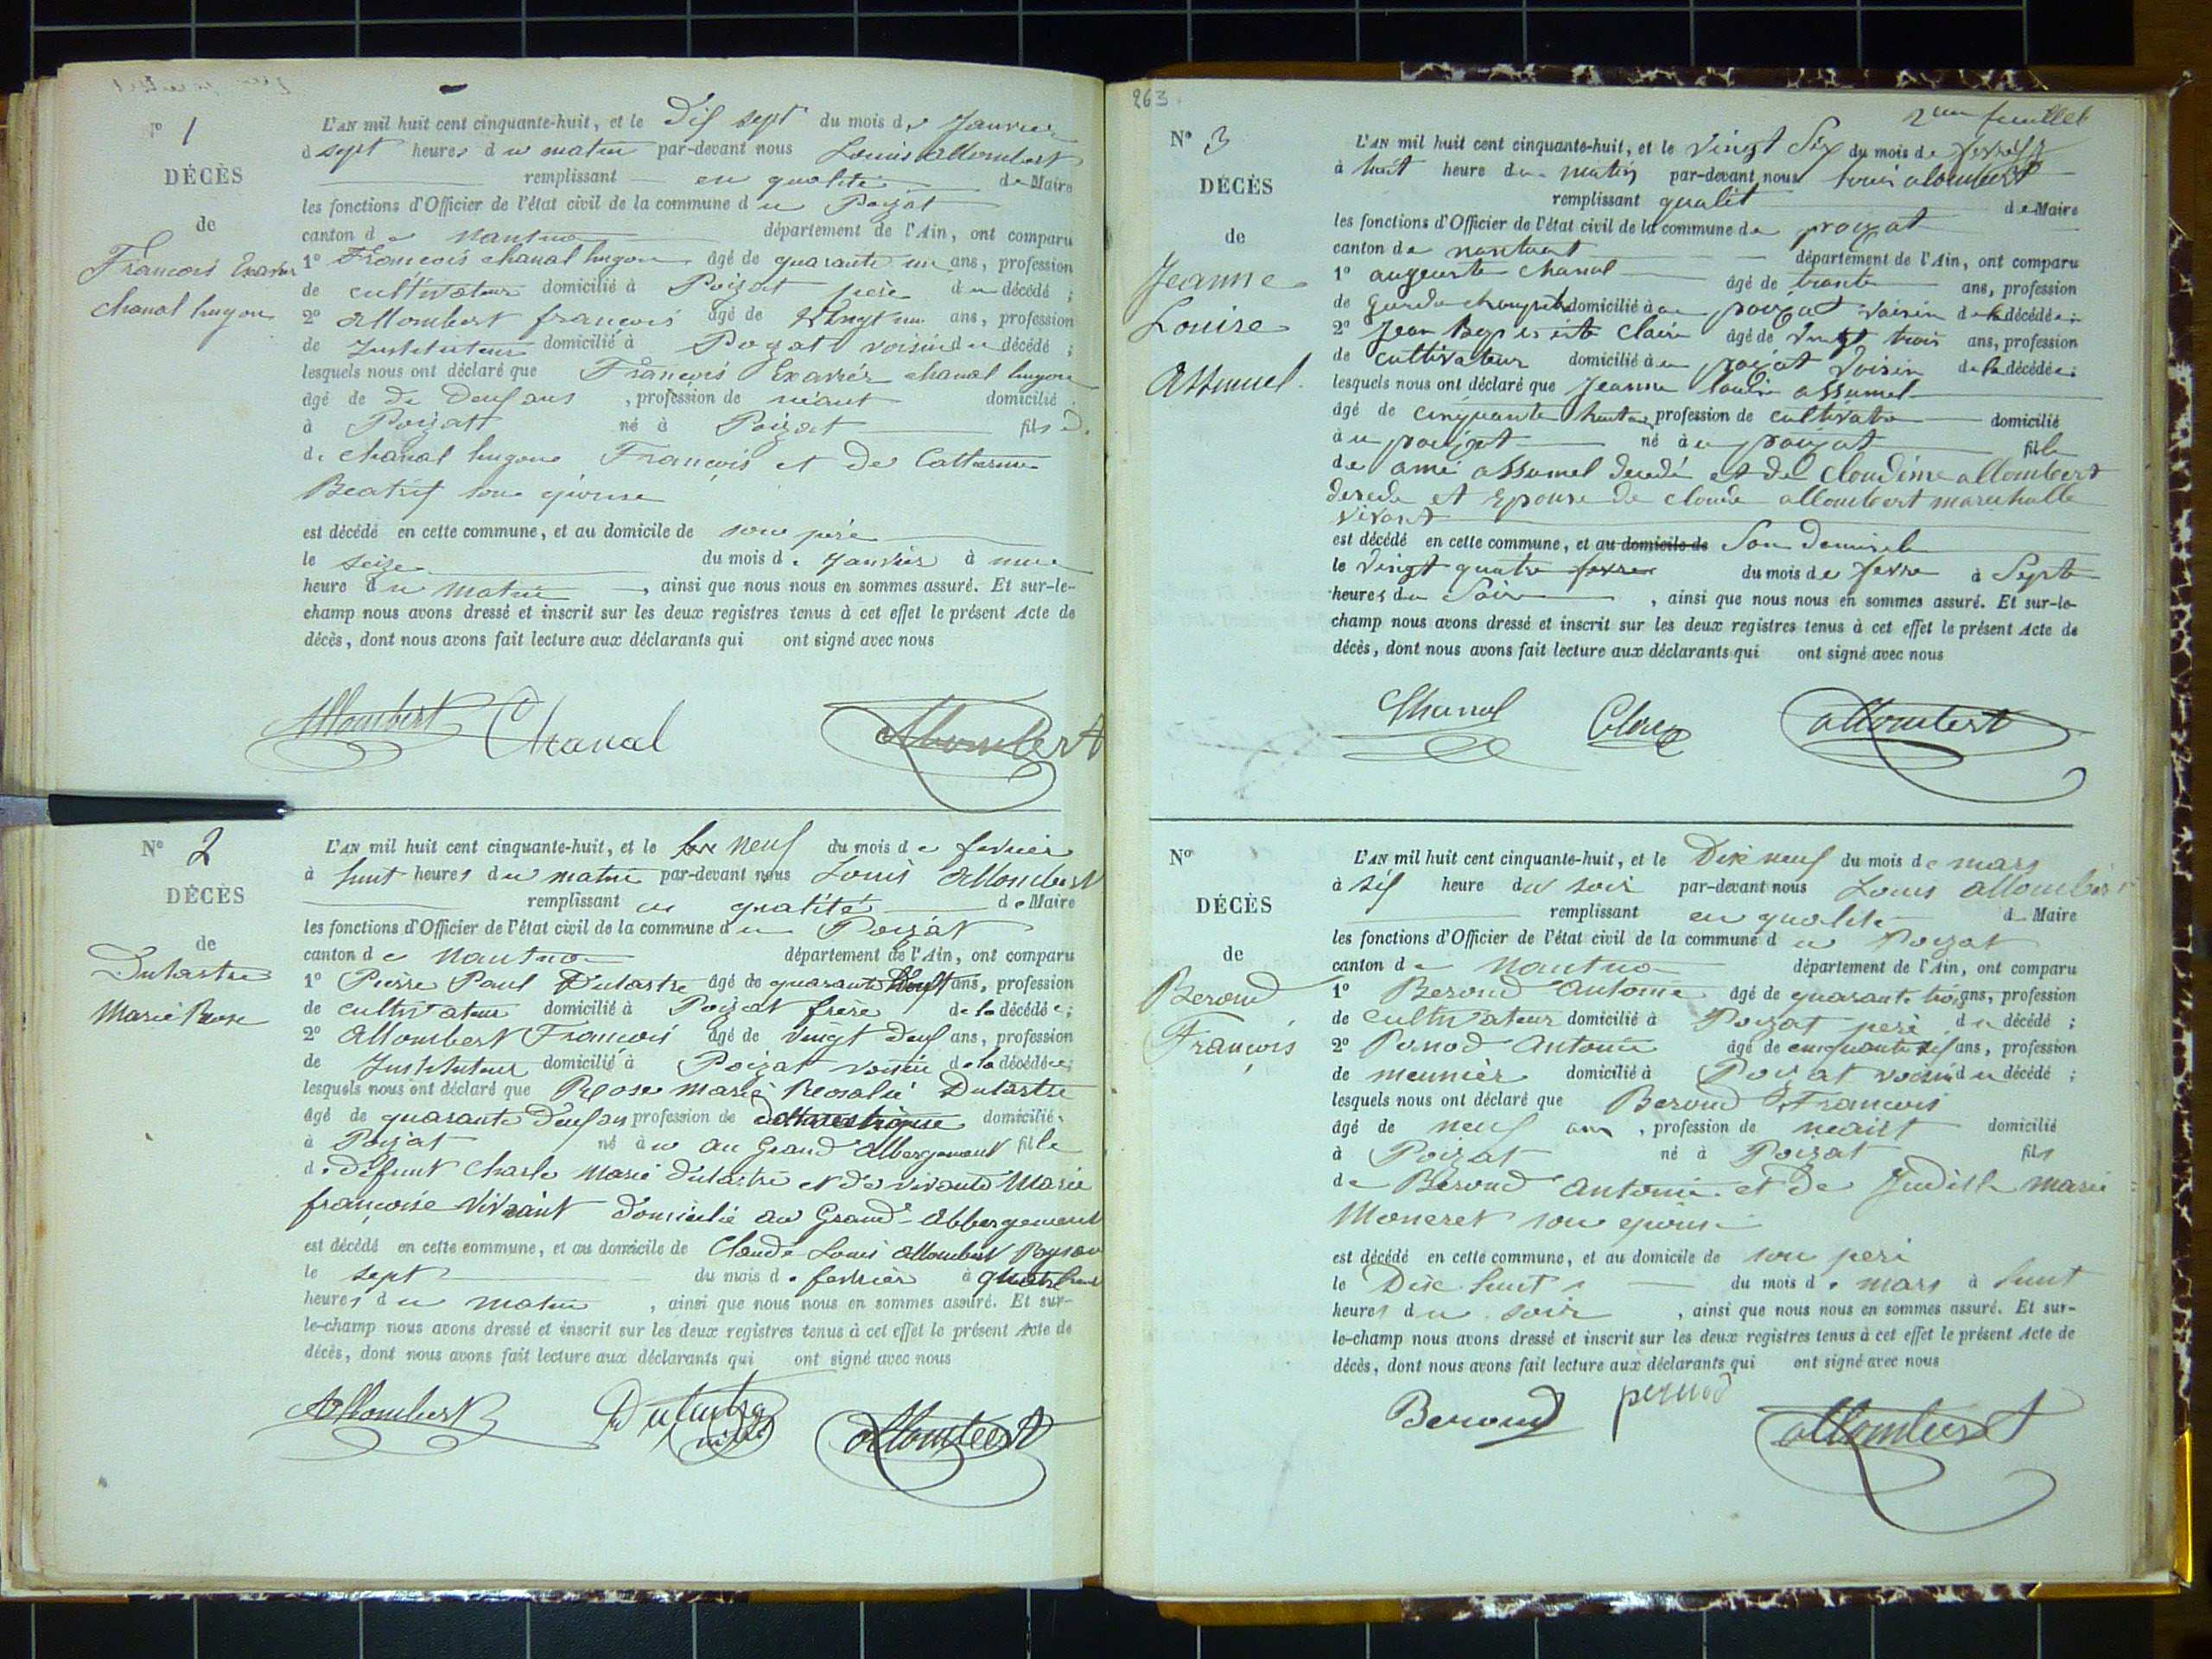 N° 1
DÉCÈS
de
Francois Exavier
chanal hugon
L'AN mil huit cent cinquante-huit, et le Dix sept du mois de Janvier
à sept heures du matin par-devant nous Louis allombert
remplissant en qualité de Maire
les fonctions d'Officier de l'état civil de la commune du Poizat
canton de Nantua département de l'Ain, ont comparu
1° Francois chanal hugon âgé de quarante un ans, profession
de cultivateur domicilié à Poizat père du décédé ;
2° Allombert francois âgé de Vingt un ans, profession
de Instituteur domicilié à Poizat voisin du décédé ;
lesquels nous ont déclaré que Francois Exavier chanal hugon
âgé de de Deux ans , profession de néant domicilié
à Poizatt né à Poizat fils d
de chanal hugon François et de Catherine
Beatrix son epouse
est décédé en cette commune, et au domicile de son père
le seize du mois de Janvier à une
heure du matin , ainsi que nous nous en sommes assuré. Et sur-le-
champ nous avons dressé et inscrit sur les deux registres tenus à cet effet le présent Acte de
décès, dont nous avons fait lecture aux déclarants qui ont signé avec nous
Allombert Chanal Allombert
N° 2
DÉCÈS
de
Dutartre
Marie Rose
L'AN mil huit cent cinquante-huit, et le neuf du mois de fevrier
à huit heures du matin par-devant nous Louis Allombert
remplissant en qualité de Maire
les fonctions d'Officier de l'état civil de la commune du Poizat
canton de Nantua département de l'Ain, ont comparu
1° Pierre Paul Dutartre âgé de quarante ans, profession
de cultivateur domicilié à Poizat frère de la décédée ;
2° Allombert Francois âgé de Vingt deux ans, profession
de Instituteur domicilié à Poizat voisin de la décédée ;
lesquels nous ont déclaré que Rose Marie Rosalie Dutartre
âgé de quarante Deux ans profession de domicilié
à Poizat né à au Grand Abbergement fille
de défunt Charle Marie Dutartre et de vivante Marie
françoise Vivant Domicilié au Grand-Abbergement
est décédé en cette commune, et au domicile de Claude Louis Allombert
le sept du mois de fevrier à quatre
heures du matin , ainsi que nous nous en sommes assuré. Et sur-
le-champ nous avons dressé et inscrit sur les deux registres tenus à cet effet le présent Acte de
décès, dont nous avons fait lecture aux déclarants qui ont signé avec nous
Allombert Dutartre Allombert
263
2eme feuillet
N° 3
DÉCÈS
de
Jeanne
Louise
Assumel
L'AN mil huit cent cinquante-huit, et le vingt Six du mois de
à huit heure du matin par-devant nous louis alombert
remplissant qualit de Maire
les fonctions d'Officier de l'état civil de la commune de poizat
canton de nantuat département de l'Ain, ont comparu
1° auguste chanal âgé de trante ans, profession
de garde champetre domicilié à au poizat voisin de la décédée ;
2° Jean Baptiste Claire âgé de vingt trois ans, profession
de cultivateur domicilié à au poizat Voisin de la décédée ;
lesquels nous ont déclaré que Jeanne louise assumel
âgé de cinquante huit ans, profession de cultivatr domicilié
à au poizat né à au poizat fille
de amé assumel decedé et de Cloudine allombert
decede et Epouse de claude allombert marechalle
vivant
est décédé en cette commune, et au domicile de Son Domicile
le vingt quatre fevrer du mois de fevre à Septe
heures du Soir , ainsi que nous nous en sommes assuré. Et sur-le-
champ nous avons dressé et inscrit sur les deux registres tenus à cet effet le présent Acte de
décès, dont nous avons fait lecture aux déclarants qui ont signé avec nous
Chanal Claire allombert
N°
DÉCÈS
de
Beroud
François
L'AN mil huit cent cinquante-huit, et le Dix neuf du mois de mars
à six heure du soir par-devant nous Louis allombert
remplissant en qualite de Maire
les fonctions d'Officier de l'état civil de la commune du Poizat
canton de Nantua département de l'Ain, ont comparu
1° Beroud Antoine âgé de quarante trois ans, profession
de Cultivateur domicilié à Poizat père du décédé ;
2° Ponod Antoine âgé de cinquante six ans, profession
de meunier domicilié à Poizat voisin du décédé ;
lesquels nous ont déclaré que Beroud Francois
âgé de neuf ans , profession de neant domicilié
à Poizat né à Poizat fils
de Beroud Antoine et de Judith marie
Moneret son epouse
est décédé en cette commune, et au domicile de son père
le Dix huit du mois de mars à huit
heures du soir , ainsi que nous nous en sommes assuré. Et sur-
le-champ nous avons dressé et inscrit sur les deux registres tenus à cet effet le présent Acte de
décès, dont nous avons fait lecture aux déclarants qui ont signé avec nous
Beroud ponod allombert